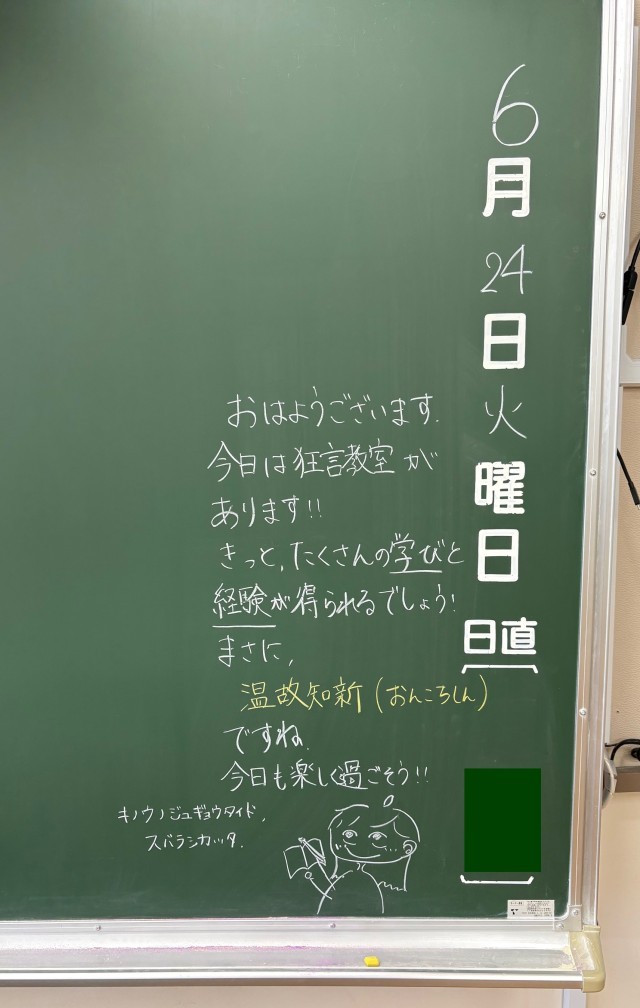 6月24日火曜日
日直
おはようございます.
今日は狂言教室が
あります!!
きっと,たくさんの学びと
経験が得られるでしょう!
まさに,
温故知新(おんころしん)
ですね.
今日も楽しく過ごそう!!
キノウノジュギョウタイド,
スバラシカッタ.